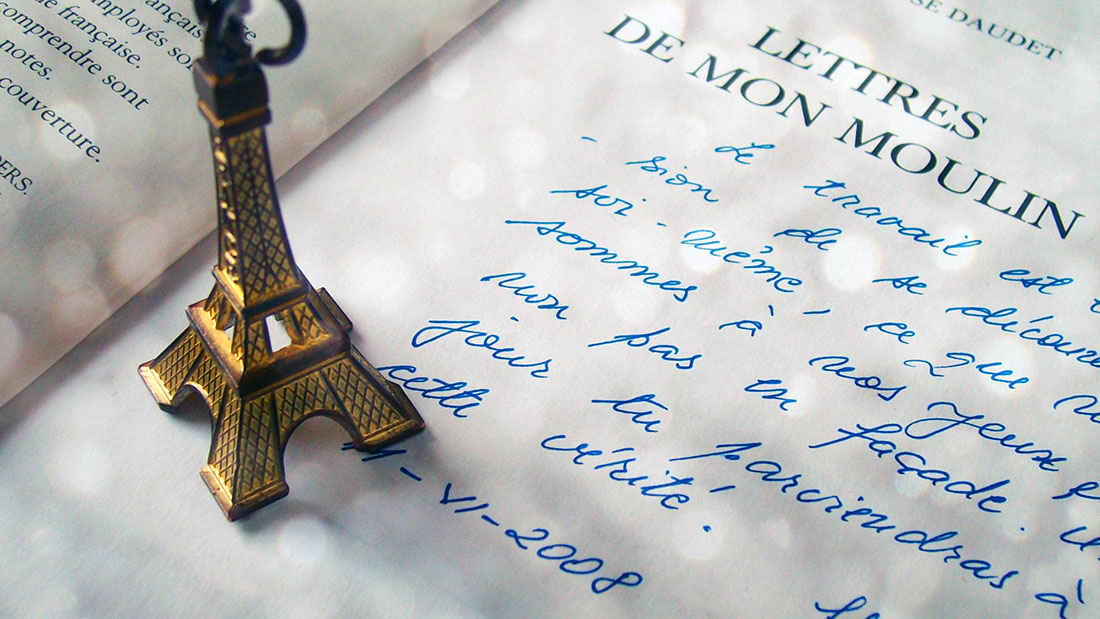 ançais
employés so
e française.
comprendre sont
notes.
couverture.
DERS.
SE DAUDET
LETTRES
DE MON MOULIN
Le travail est
- sion de se décou
soi-même, ce que
sommes à nos yeux
non pas en façade. Un
jour tu parviendras à
cette vérité.
VI-2008